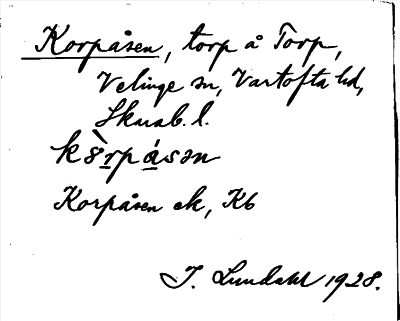 Korpåsen, torp å Torp,
Velinge sn, Vartofta hd,
Skarab. l.
kö̀rpåsən
Korpåsen ek, Kb
J. Lundahl 1928.